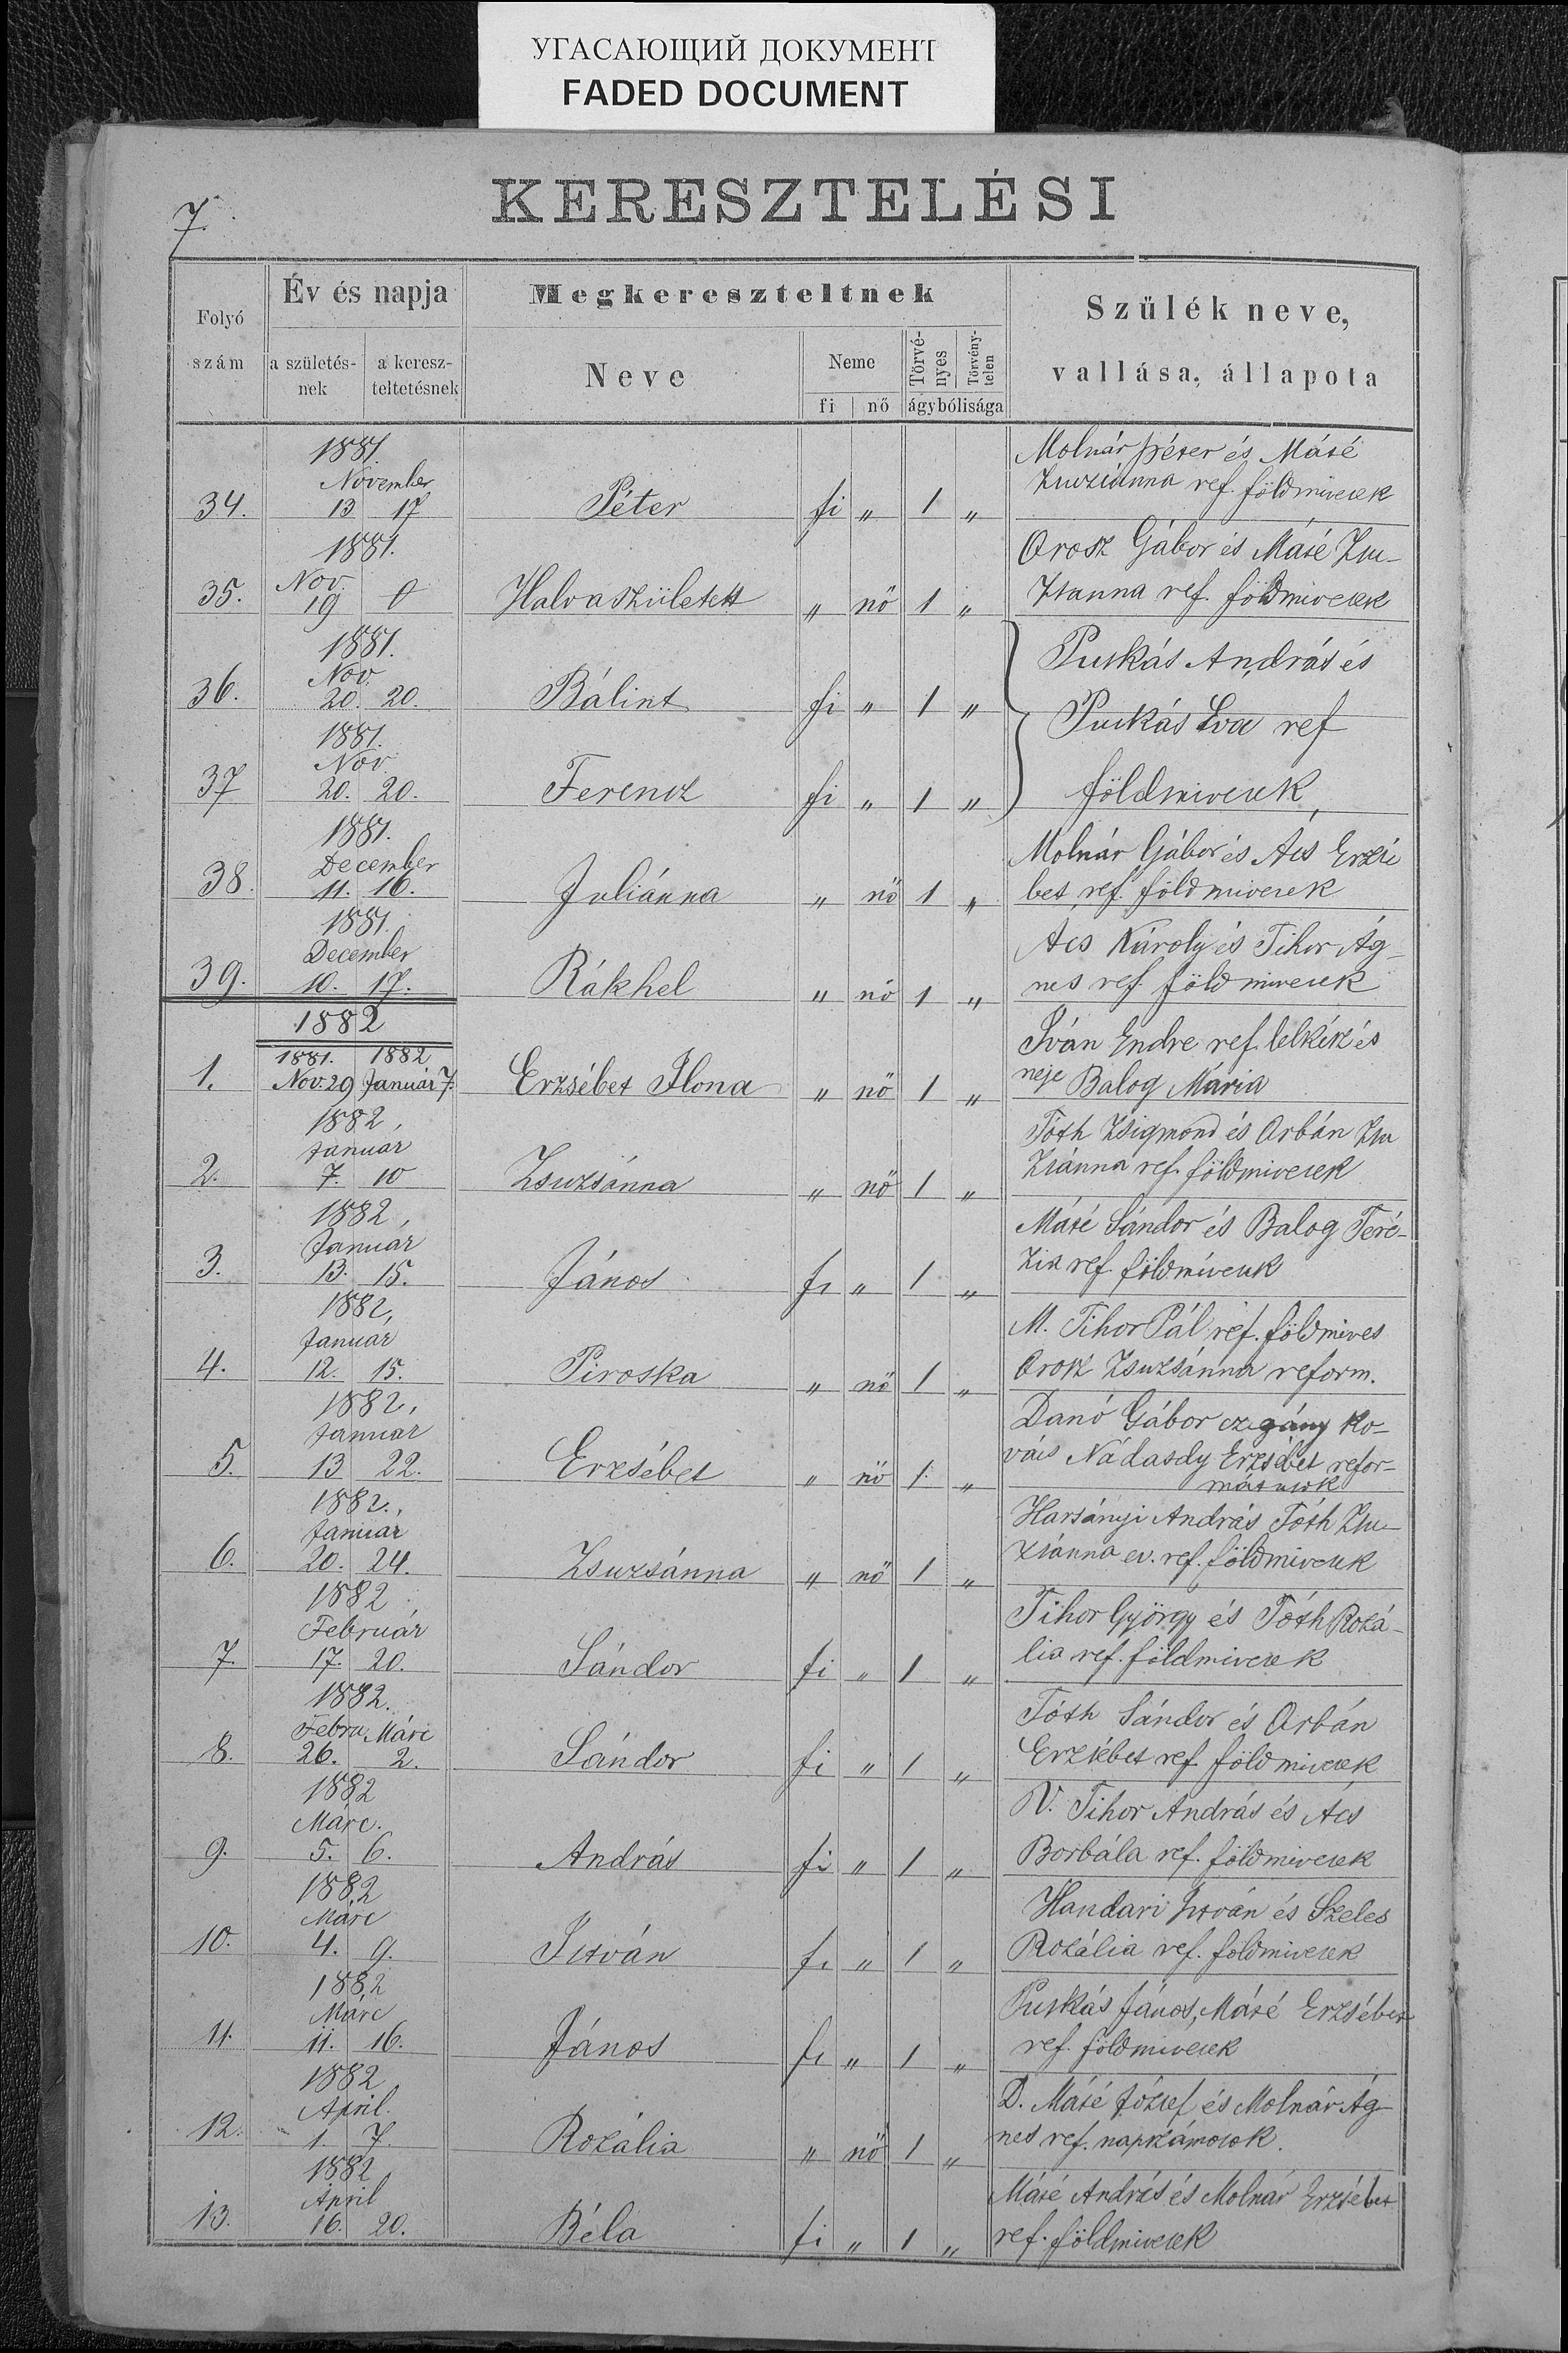 УГАСАЮЩИЙ ДОКУМЕНТ
FADED DOCUMENT
7.
KERESZTELÉSI
Folyó szám
Év és napja
a születés-nek
a keresz-teltetésnek
Megkereszteltnek
Neve
Neme
fi
nő
Törvé-nyes
Törvény-telen
ágybólisága
Szülék neve,
vallása, állapota
1881.
November
34. 13 17 Péter fi „ 1 „
Molnár Péter és Máté
Zsuzsánna ref. földmivesek
1881.
Nov.
35. 19 0 Halva született „ nö 1 „
Orosz Gábor és Máté Zsu-
zsanna ref. földmivesek
1881.
Nov.
36. 20. 20. Bálint fi „ 1 „
1881.
Nov
37 20. 20. Ferencz fi „ 1 „
Puskás András és
Puskás Éva ref
földmivesek,
1881.
December
38. 11. 16. Juliánna „ nö 1 „
Molnár Gábor és Ács Erzsé
bet, ref. földmivesek
1881.
December
39. 10. 17. Rákhel „ nö 1 „
Ács Károly és Tihor Ág-
nes ref. földmivesek
1882
1881. 1882
1. Nov. 29 Január 7. Erzsébet Ilona „ nö 1 „
Iván Endre ref. lelkész és
neje Balog Mária
1882,
Január
2. 7. 10 Zsuzsánna „ nö 1 „
Tóth Zsigmond és Orbán Zsu
zsánna ref. földmivesek
1882,
Január
3. 13. 15. János fi „ 1 „
Máté Sándor és Balog Teré-
zia ref. földmívesek
1882,
Január
4. 12. 15. Piroska „ nö 1 „
M. Tihor Pál ref. földmives
Orosz Zsuzsánna reform.
1882,
Január
5. 13 22. Erzsébet „ nö 1. „
Danó Gábor czigány ko-
vács Nádasdy Erzsébet refor-
mátusok
1882.,
Január
6. 20. 24. Zsuzsánna „ nö 1 „
Harsányi András Tóth Zsu-
zsánna ev. ref. földmivesek
1882
Február
7. 17. 20. Sándor fi „ 1 „
Tihor György és Tóth Rozá-
lia ref. földmivesek
1882.
Febru Márc
8. 26. 2. Sándor fi „ 1 „
Tóth Sándor és Orbán
Erzsébet ref. földmivesek
1882
Márc.
9. 5. 6. András fi „ 1 „
V. Tihor András és Ács
Borbála ref. földmivesek
1882
Márc
10. 4. 9. István fi „ 1 „
Handari István és Szeles
Rozália ref. földmivesek
1882
Márc
11. 11. 16. János fi „ 1 „
Puskás János, Máté Erzsébet
ref. földmivesek
1882
April.
12. 1. 7. Rozália „ nö 1 „
D. Máté József és Molnár Ág-
nes ref. napszámosok.
1882
April
13. 16. 20. Béla fi „ 1 „
Máté András és Molnár Erzsébet
ref. földmivesek